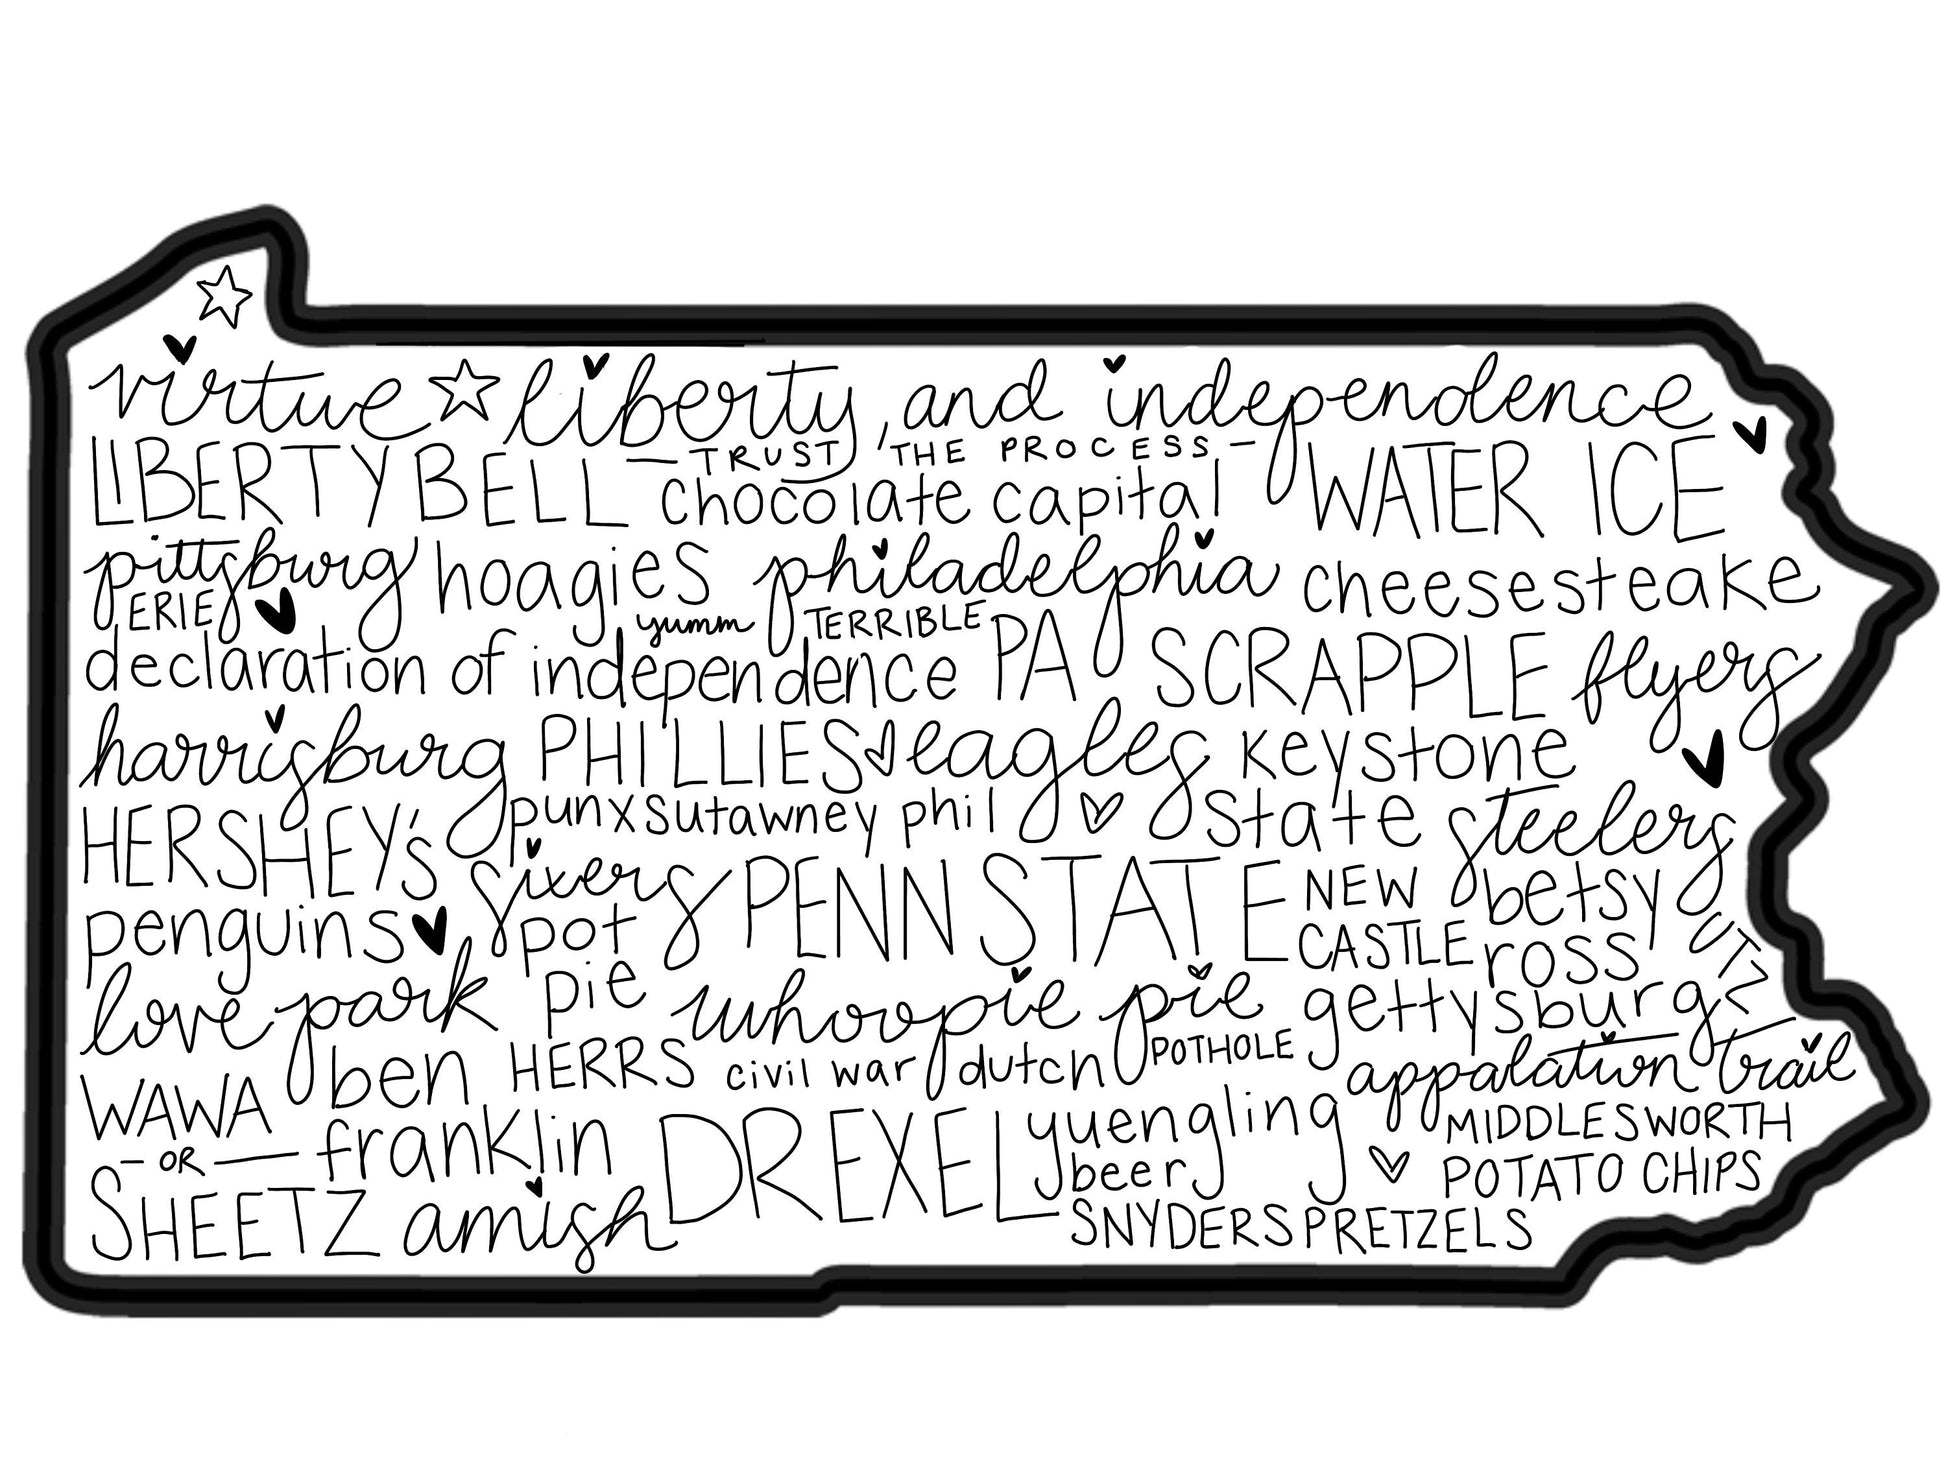 virtue liberty, and independence
LIBERTY BELL — TRUST THE PROCESS — WATER ICE
chocolate capital
pittsburg hoagies philadelphia cheesesteake
ERIE yumm TERRIBLE
declaration of independence PA SCRAPPLE flyers
harrisburg PHILLIES eagles keystone
HERSHEY's punxsutawney phil state steelers
sixers PENN STATE NEW betsy
penguins pot CASTLE ross UTZ
love park pie whoopie pie gettysburg
ben HERRS civil war dutch POTHOLE appalation trail
WAWA franklin DREXEL yuengling MIDDLESWORTH
- OR — beer POTATO CHIPS
SHEETZ amish SNYDERS PRETZELS